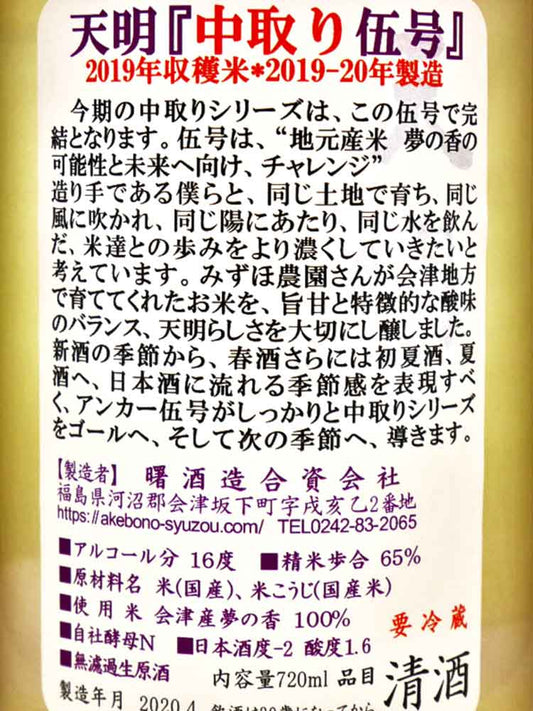 天明『中取り伍号』
2019年収穫米*2019-20年製造
今期の中取りシリーズは、この伍号で完
結となります。伍号は、“地元産米 夢の香の
可能性と未来へ向け、チャレンジ”
造り手である僕らと、同じ土地で育ち、同じ
風に吹かれ、同じ陽にあたり、同じ水を飲ん
だ、米達との歩みをより濃くしていきたいと
考えています。みずほ農園さんが会津地方
で育ててくれたお米を、旨甘と特徴的な酸味
のバランス、天明らしさを大切にし醸しました。
新酒の季節から、春酒さらには初夏酒、夏
酒へ、日本酒に流れる季節感を表現すべ
く、アンカー伍号がしっかりと中取りシリーズ
をゴールへ、そして次の季節へ、導きます。
【製造者】 曙酒造合資会社
福島県河沼郡会津坂下町字戌亥乙2番地
https://akebono-syuzou.com/ TEL0242-83-2065
■アルコール分 16度 ■精米歩合 65%
■原材料名 米(国産)、米こうじ(国産米)
■使用米 会津産夢の香 100%
■自社酵母N ■日本酒度-2 酸度1.6
要冷蔵
■無濾過生原酒 内容量720ml 品目 清酒
製造年月 2020.4 飲酒は20歳になってから